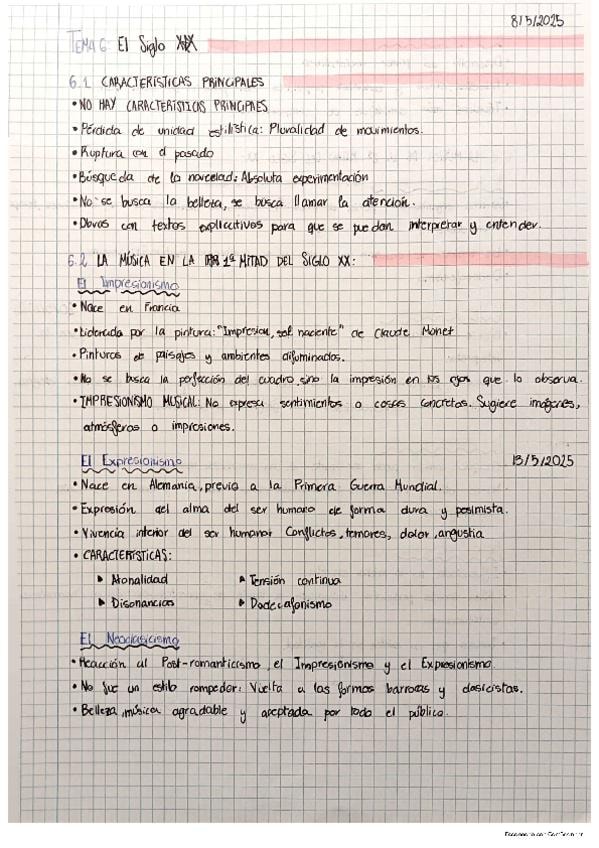 8/5/2025
TEMA 6: El Siglo XX
6.1 CARACTERÍSTICAS PRINCIPALES
• NO HAY CARACTERÍSTICAS PRINCIPAES
• Pérdida de unidad estilística: Pluralidad de movimientos.
• Ruptura con el pasado
• Búsqueda de la novedad: Absoluta experimentación
• No se busca la belleza, se busca llamar la atención.
• Obras con textos explicativos para que se puedan interpretar y entender.
6.2 LA MÚSICA EN LA 1ª MITAD DEL SIGLO XX:
El Impresionismo
• Nace en Francia
• Liderada por la pintura: "Impresion, sol naciente" de Claude Monet
• Pinturas de paisajes y ambientes difuminados.
• No se busca la perfección del cuadro, sino la impresión en los ojos que lo observa.
• IMPRESIONISMO MUSICAL: No expresa sentimientos o cosas concretas. Sugiere imágenes,
atmósferas o impresiones.
El Expresionismo
13/5/2025
• Nace en Alemania, previo a la Primera Guerra Mundial.
• Expresión del alma del ser humano de forma dura y pesimista.
• Vivencia interior del ser humano: Conflictos, temores, dolor, angustia
• CARACTERÍSTICAS:
▸ Atonalidad ▸ Tensión continua
▸ Disonancias ▸ Dodecafonismo
El Neoclasicismo
• Reacción al Post-romanticismo, el Impresionismo y el Expresionismo.
• No fue un estilo rompedor: Vuelta a las formas barrocas y clasicistas.
• Belleza, música agradable y aceptada por todo el público.